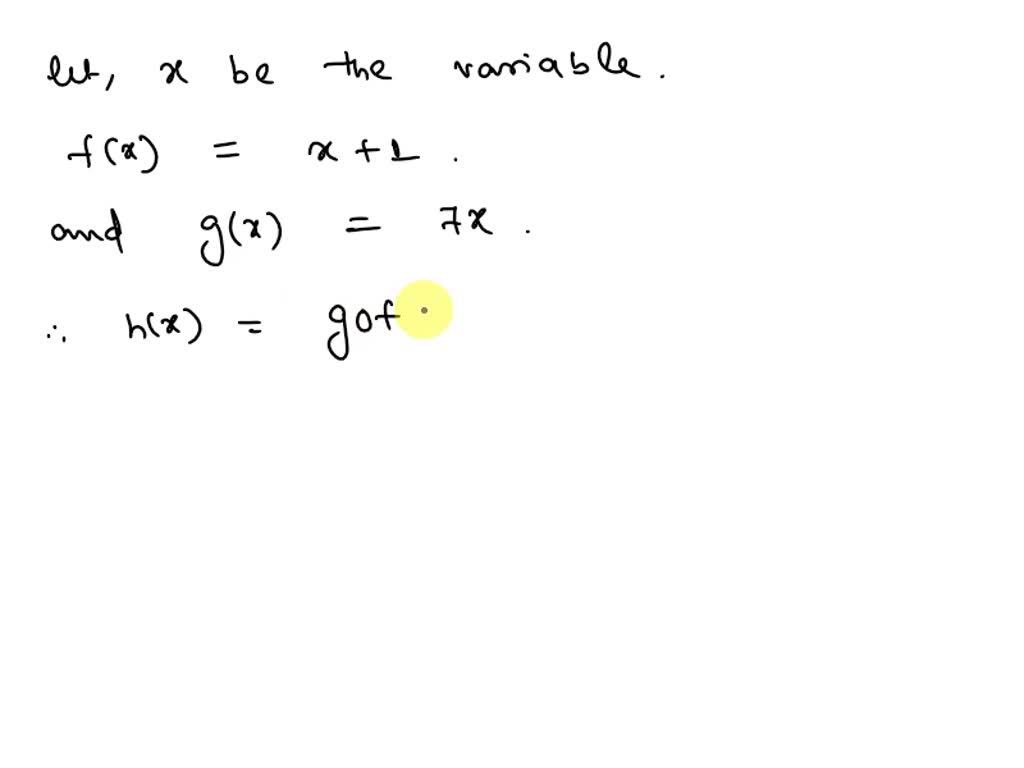 let, x be the variable.
f(x) = x + 1.
and g(x) = 7x.
∴ h(x) = gof